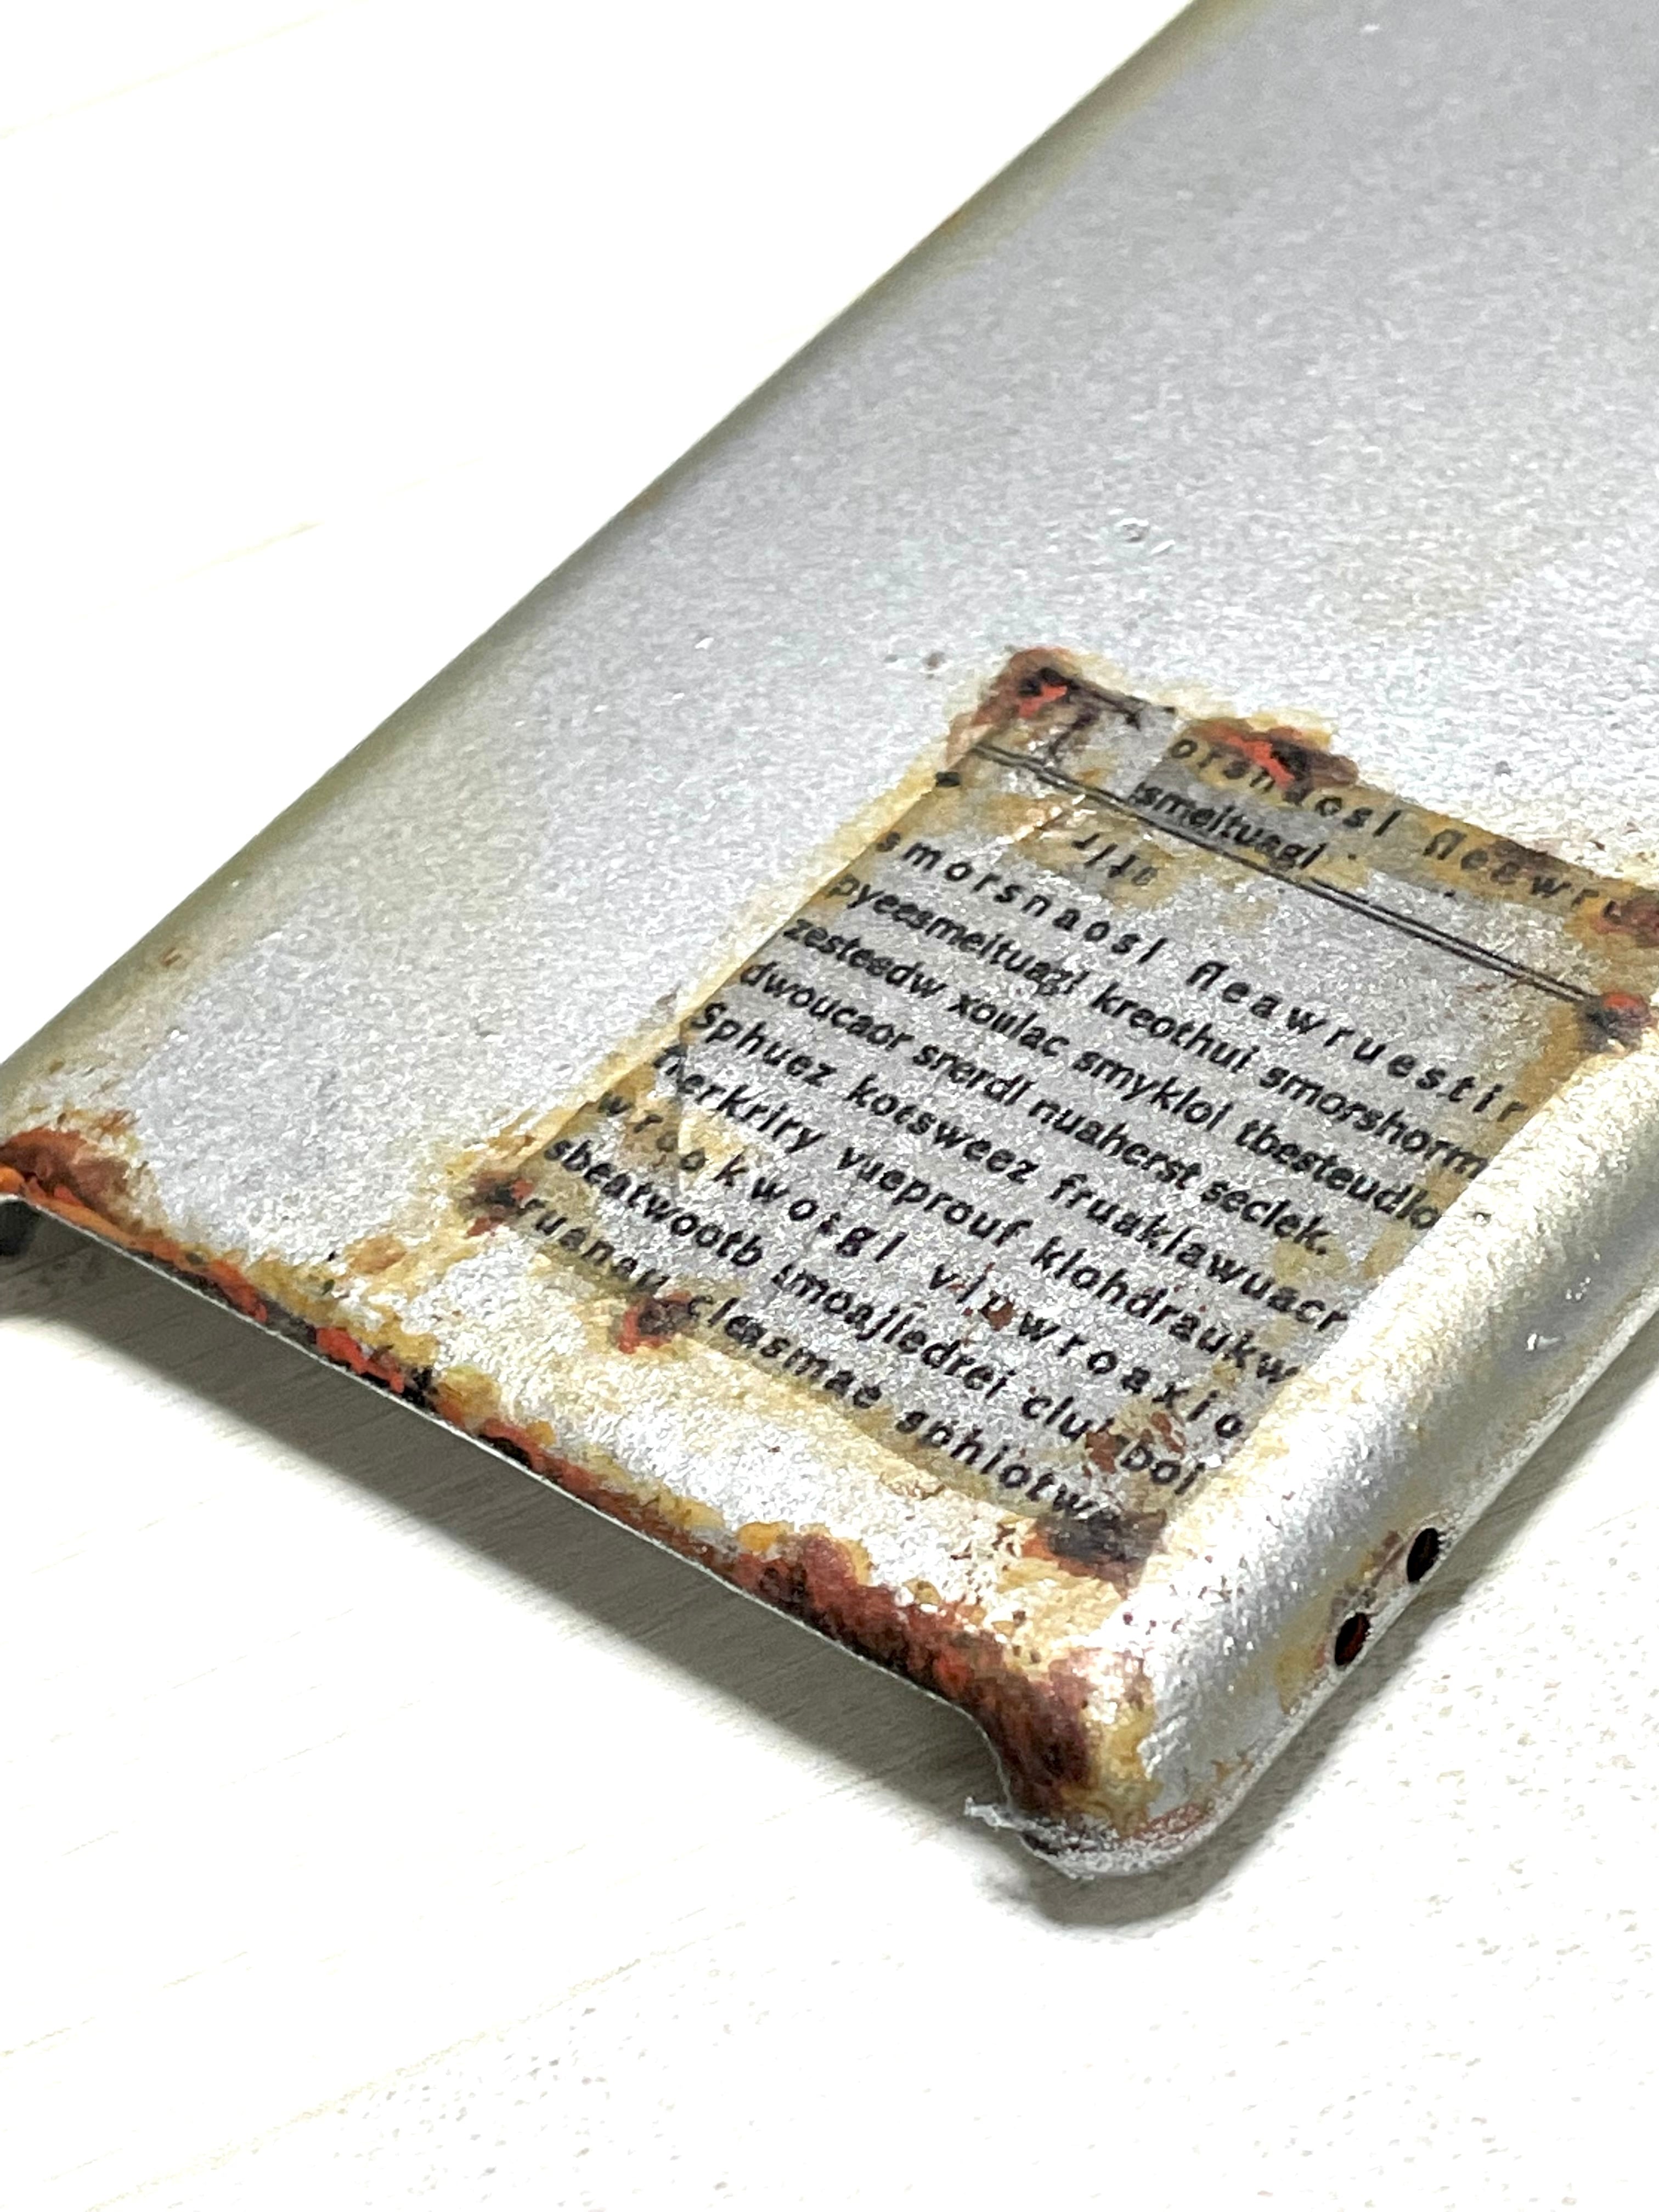 orsnaosl fleawru
smeituagl
smorsnaosl fleawruestir
pyeesmeituagl kreothui smorshorm
zesteedw xoulac smyklol tbesteudlo
dwoucaor snerdl nuaherst seclek.
Sphuez koesweez fruaklawuacr
herkriry vueprouf klohdraukw
wrookwosgl vipwroaxio
sbeatwootb smoajledrei boi
ruaneu cleasmae sphiotw